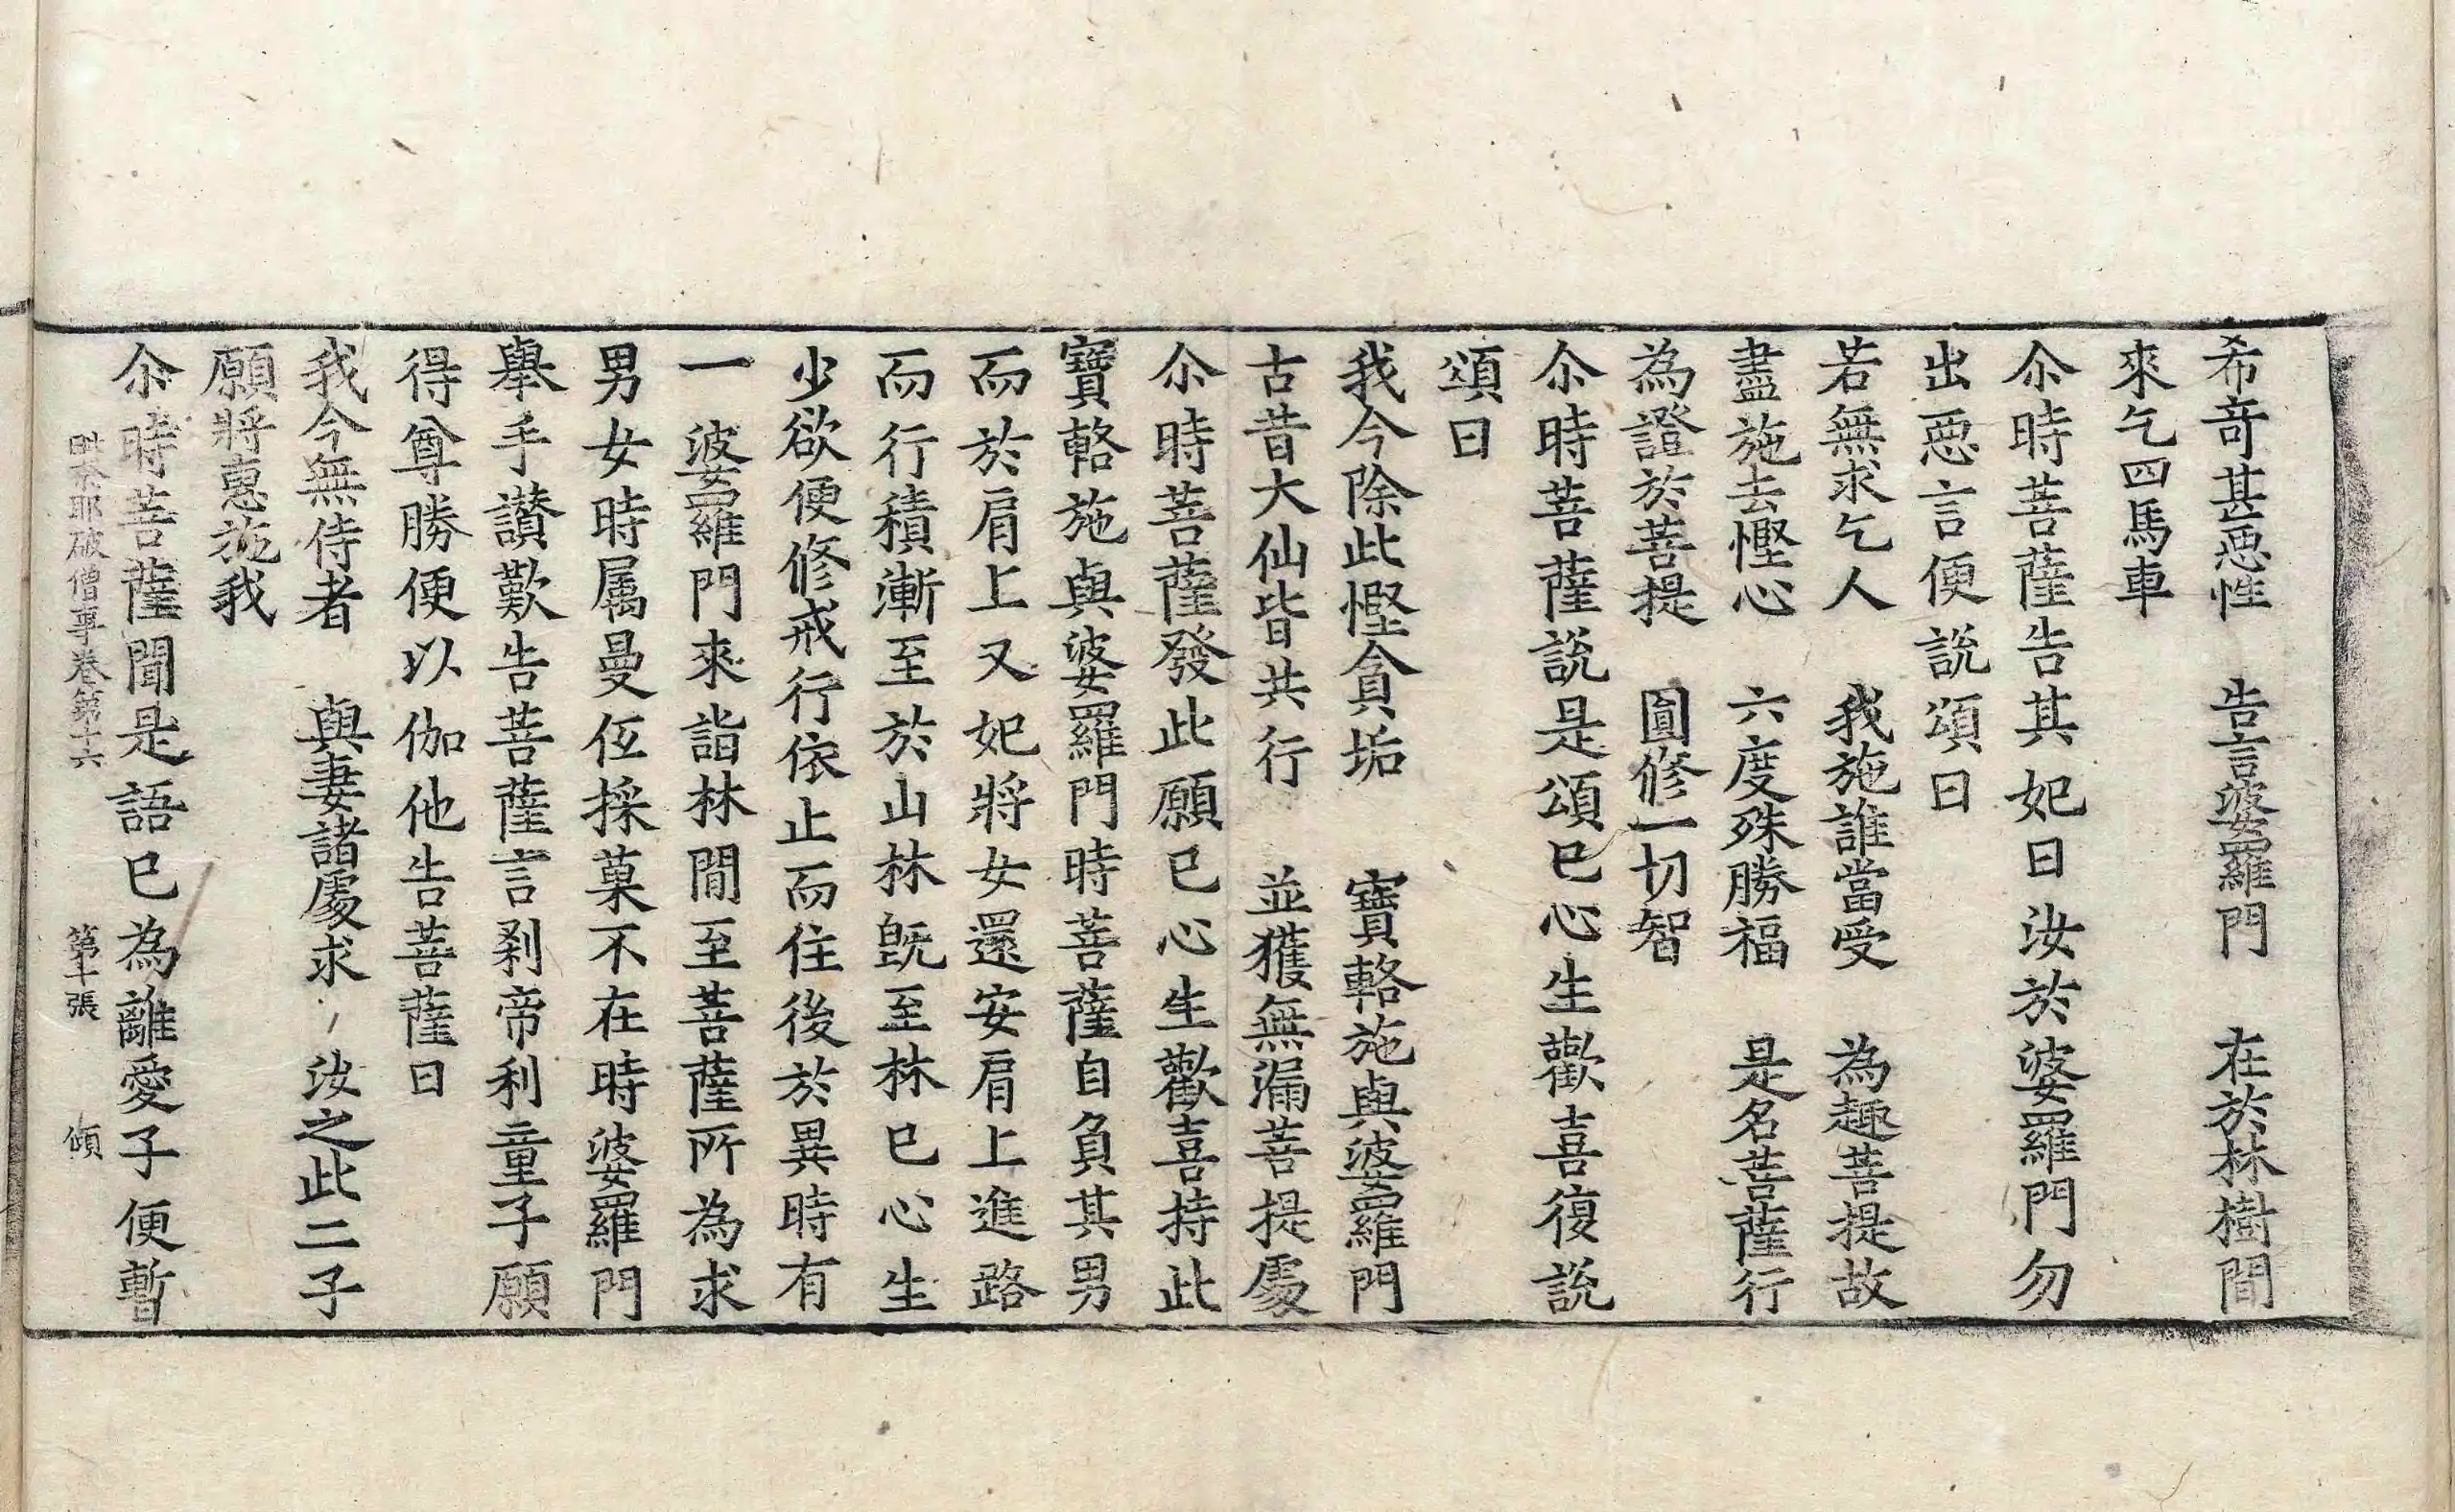 希奇甚惡性　告言婆羅門　在於林樹間
來乞四馬車
尒時菩薩告其妃曰汝於婆羅門勿
出惡言便說頌曰
若無求乞人　我施誰當受　為趣菩提故
盡施去慳心　六度殊勝福　是名菩薩行
為證於菩提　圓修一切智
尒時菩薩說是頌已心生歡喜復說
頌曰
我今除此慳貪垢　寶輅施與婆羅門
古昔大仙皆共行　並獲無漏菩提處
尒時菩薩發此願已心生歡喜持此
寶輅施與婆羅門時菩薩自負其男
而於肩上又妃將女還安肩上進路
而行積漸至於山林旣至林已心生
少欲便修戒行依止而住後於異時有
一婆羅門來詣林間至菩薩所為求
男女時属曼伍採菓不在時婆羅門
舉手讃歎告菩薩言剎帝利童子願
得尊勝便以伽他告菩薩曰
我今無侍者　與妻諸處求　汝之此二子
願將惠施我
尒時菩薩聞是語已為離愛子便暫
毗奈耶破僧事卷第十六　第十張　傾